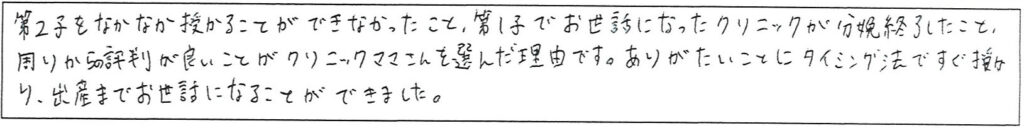 第2子をなかなか授かることができなかったこと、第1子でお世話になったクリニックが分娩終了したこと、
周りからの評判が良いことがクリニックママさんを選んだ理由です。ありがたいことにタイミング法ですぐ授か
り、出産までお世話になることができました。